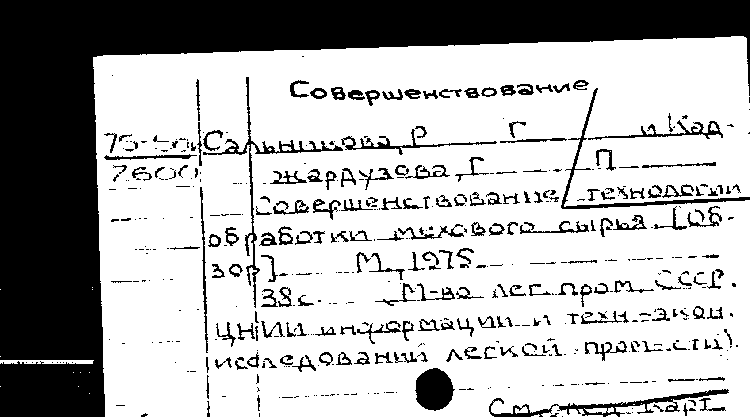 Совершенствование
Сальникова, Р Г и Кад-
7600 жардузова, Г П
Совершенствование технологии
обработки мехового сырья. [Об-
зор]. М., 1975.
38 с. (М-во лег. пром. СССР.
ЦНИИ информации и техн.-экон.
исследований легкой пром-сти).
См. след. карт